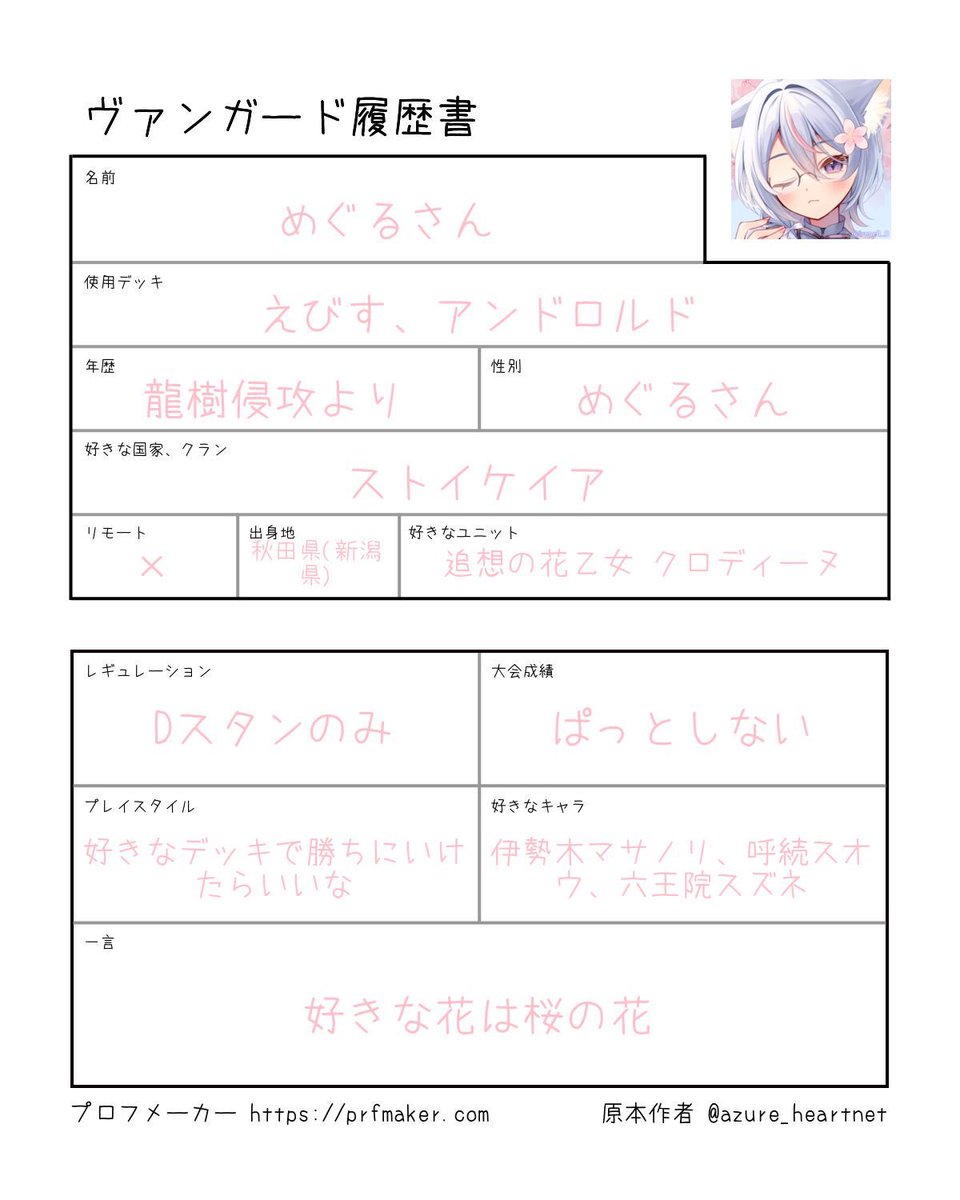 ヴァンガード履歴書
名前
めぐるさん
使用デッキ
えびす、アンドロルド
年歴
龍樹侵攻より
性別
めぐるさん
好きな国家、クラン
ストイケイア
リモート
×
出身地
秋田県(新潟
県)
好きなユニット
追想の花乙女 クロディーヌ
レギュレーション
Dスタンのみ
大会成績
ぱっとしない
プレイスタイル
好きなデッキで勝ちにいけ
たらいいな
好きなキャラ
伊勢木マサノリ、呼続スオ
ウ、六王院スズネ
一言
好きな花は桜の花
プロフメーカー https://prfmaker.com
原本作者 @azure_heartnet